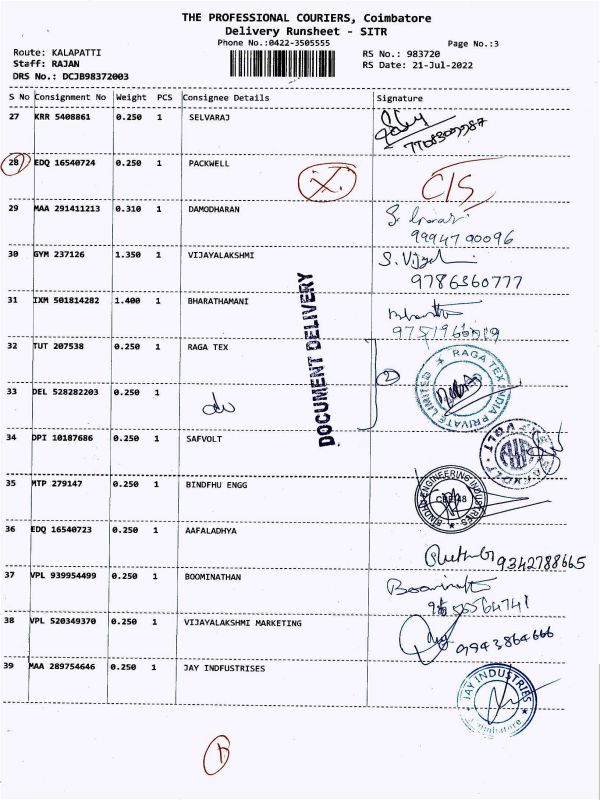 THE PROFESSIONAL COURIERS, Coimbatore
Delivery Runsheet - SITR
Phone No.:0422-3505555
Page No.:3
Route: KALAPATTI
RS No.: 983720
Staff: RAJAN
RS Date: 21-Jul-2022
DRS No.: DCJB98372003
S No Consignment No Weight PCS Consignee Details Signature
27 KRR 5408861 0.250 1 SELVARAJ
28 EDQ 16540724 0.250 1 PACKWELL X. C/S
29 MAA 291411213 0.310 1 DAMODHARAN
9994700096
30 GYM 237126 1.350 1 VIJAYALAKSHMI S. Vijay
9786360777
31 IXM 501814282 1.400 1 BHARATHAMANI
DOCUMENT DELIVERY
32 TUT 207538 0.250 1 RAGA TEX
2
RAGA TEX INDIA PRIVATE LIMITED
33 DEL 528282203 0.250 1 do
34 DPI 10187686 0.250 1 SAFVOLT
35 MTP 279147 0.250 1 BINDFHU ENGG
BINDHU ENGINEERING INDUSTRIES
36 EDQ 16540723 0.250 1 AAFALADHYA
9342788665
37 VPL 939954499 0.250 1 BOOMINATHAN Boominath
38 VPL 520349370 0.250 1 VIJAYALAKSHMI MARKETING
9943864666
39 MAA 289754646 0.250 1 JAY INDFUSTRISES
JAY INDUSTRIES
Coimbatore